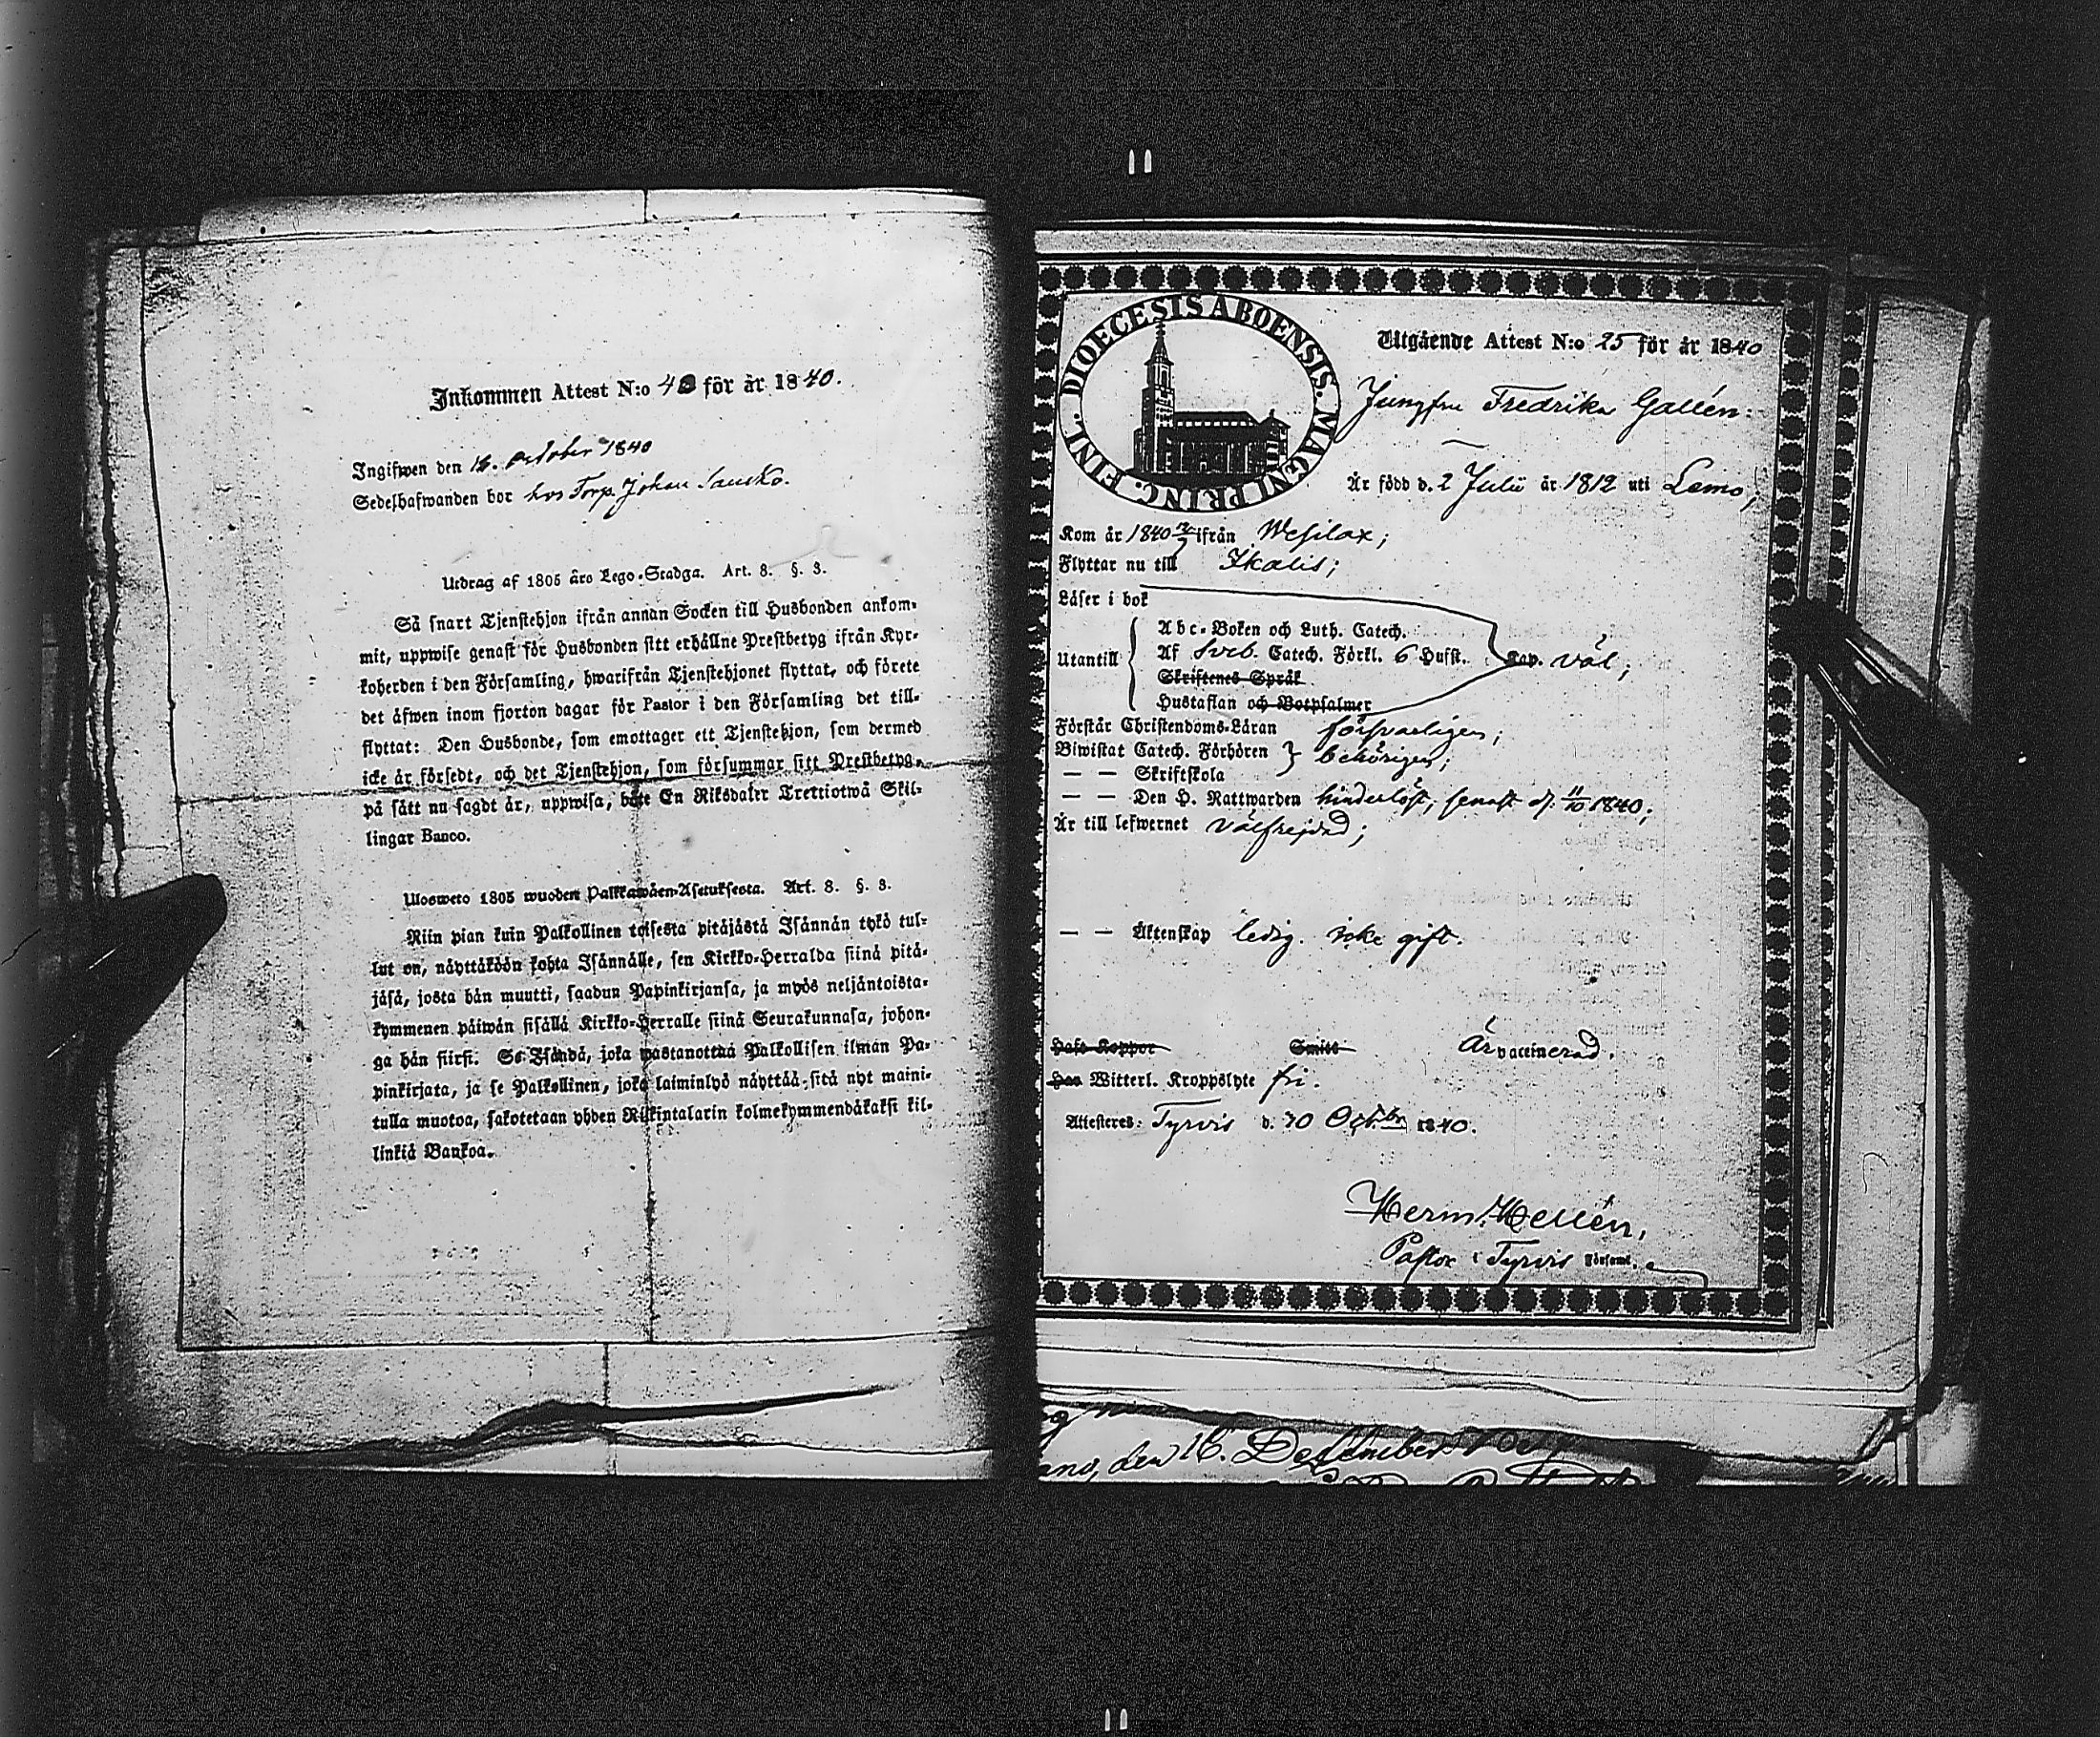 Inkommen Attest N:o 40 för år 1840.
Ingifwen den 16. october 1840
Sedelhafwanden bor hos Torp. Johan
Utdrag af 1805 års Lego-Stadga. Art. 8. §. 3.
Så snart Tjenstehjon ifrån annan Socken till Husbonden ankom-
mit, uppwise genast för Husbonden sitt erhållne Prestbetyg ifrån Kyr-
koherden i den Församling, hwarifrån Tjenstehjonet flyttat, och förete
det äfwen inom fjorton dagar för Pastor i den Församling det till-
flyttat: Den Husbonde, som emottager ett Tjenstehjon, som dermed
icke är försedt, och det Tjenstehjon, som försummar sitt Prestbetyg,
på sätt nu sagdt är, uppwisa, böte En Riksdaler Trettiotwå Skil-
lingar Banco.
Ulosweto 1805 wuoden Palkkawäen-Asetuksesta. Art. 8. §. 3.
Niin pian kuin Palkollinen toisesta pitäjästä Isännän tykö tul-
lut on, näyttäköön kohta Isännälle, sen Kirkko-Herralda siinä pitä-
jäsä, josta hän muutti, saadun Papinkirjansa, ja myös neljäntoista-
kymmenen päiwän sisällä Kirkko-Herralle siinä Seurakunnasa, johon-
ga hän siirsi. Se Isändä, joka wastanottaa Palkollisen ilman Pa-
pinkirjata, ja se Palkollinen, joka laiminlyö näyttää sitä nyt maini-
tulla muotoa, sakotetaan yhden Riikintalarin kolmekymmendäkaksi kil-
linkiä Bankoa.
DIOECESIS ABOENSIS. MAGNI PRINC. FINL.
Utgående Attest N:o 25 för år 1840
Jungfru Fredrika Gallén:
Är född d. 2 Julii år 1812 uti Lemo;
Kom år 1840 ifrån Wesilax;
Flyttar nu till Ikalis;
Läser i bok
Abc-Boken och Luth. Catech.
Utantill Af Sveb. Catech. Förkl. 6 Hufst. Cap. väl;
Skriftenes Språk
Hustaflan och Botpsalmer
Förstår Christendoms-Läran försvarligen;
Biwistat Catech. Förhören behörigen;
— — Skriftskola
— — Den H. Nattwarden hinderlöst, senast d. 11/10 1840;
Är till lefwernet välfrejdad;
— — Äktenskap ledig. icke gift.
Haft Koppor Smitt Är vaccinerad.
Har Witterl. Kroppslyte fri.
Attesteres: Tyrvis d. 30 Octobr. 1840.
Herm. Hellén,
Pastor i Tyrvis Församl.
den 16. December